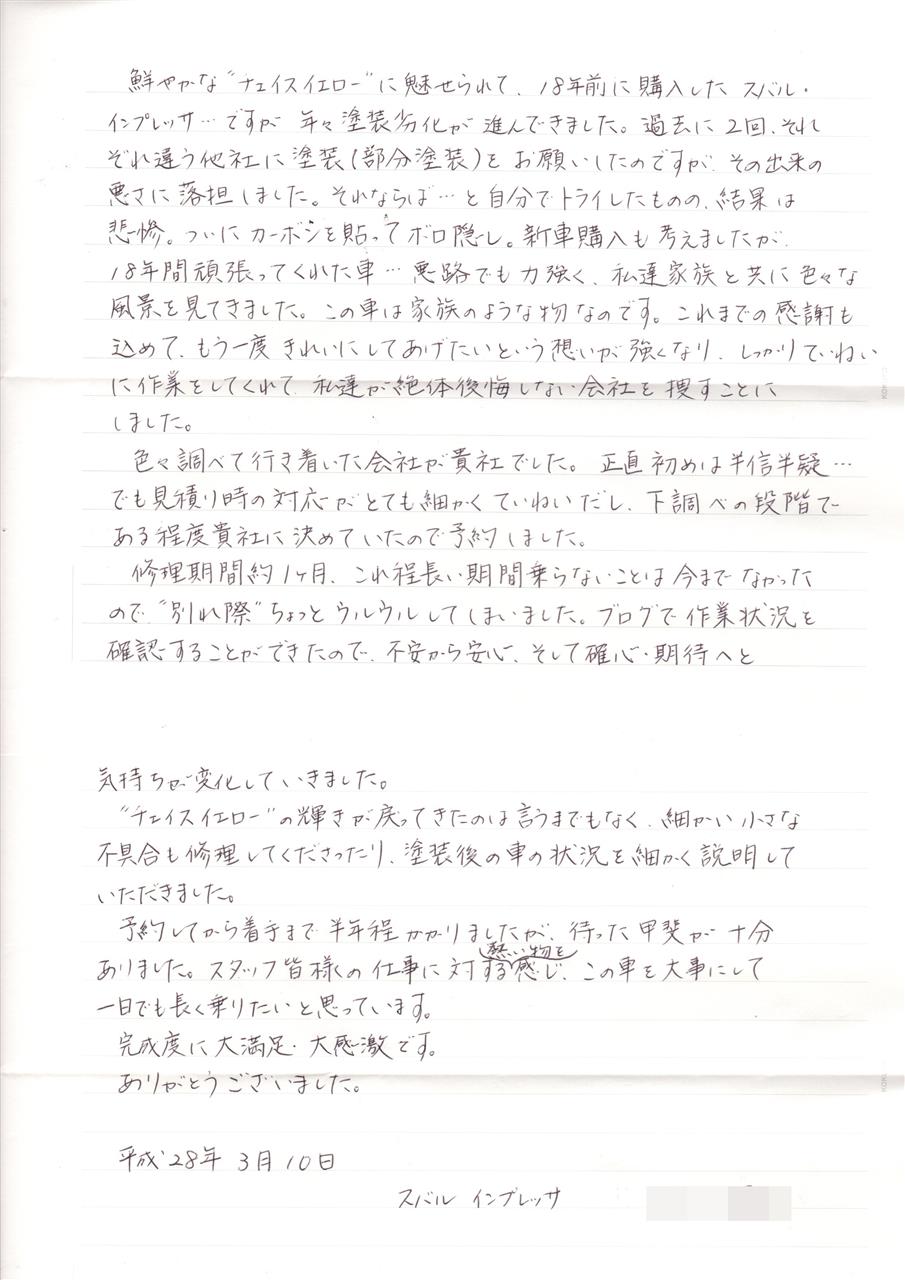 鮮やかな"チェイスイエロー"に魅せられて、18年前に購入した スバル・
インプレッサ…ですが 年々塗装劣化が 進んできました。過去に 2回、それ
ぞれ違う他社に 塗装(部分塗装)を お願いしたのですが、その出来の
悪さに落担しました。それならば…と 自分でトライしたものの、結果は
悲惨。ついに カーボンを貼って ボロ隠し。新車購入も 考えましたが、
18年間頑張ってくれた車… 悪路でも 力強く、私達家族と共に 色々な
風景を見てきました。この車は家族のような物なのです。これまでの感謝も
込めて、もう一度 きれいにしてあげたいという想いが強くなり、しっかりていねい
に作業をしてくれて、私達が絶体後悔しない会社を 捜すことに
しました。
色々調べて行き着いた会社が貴社でした。 正直初めは半信半疑…
でも見積り時の対応がとても細かくていねいだし、下調べの段階で
ある程度貴社に決めていたので予約しました。
修理期間約1ヶ月、これ程長い期間乗らないことは今までなかった
ので"別れ際"ちょっとウルウルしてしまいました。ブログで作業状況を
確認することができたので、不安から安心、そして確心・期待へと
気持ちが変化していきました。
"チェイスイエロー"の輝きが戻ってきたのは言うまでもなく、細かい小さな
不具合も修理してくださったり、塗装後の車の状況を細かく説明して
いただきました。
予約してから着手まで半年程かかりましたが、待った甲斐が十分
ありました。スタッフ皆様の仕事に対する熱い物を感じ、この車を大事にして
一日でも長く乗りたいと思っています。
完成度に大満足・大感激です。
ありがとうございました。
平成28年 3月10日
スバル インプレッサ